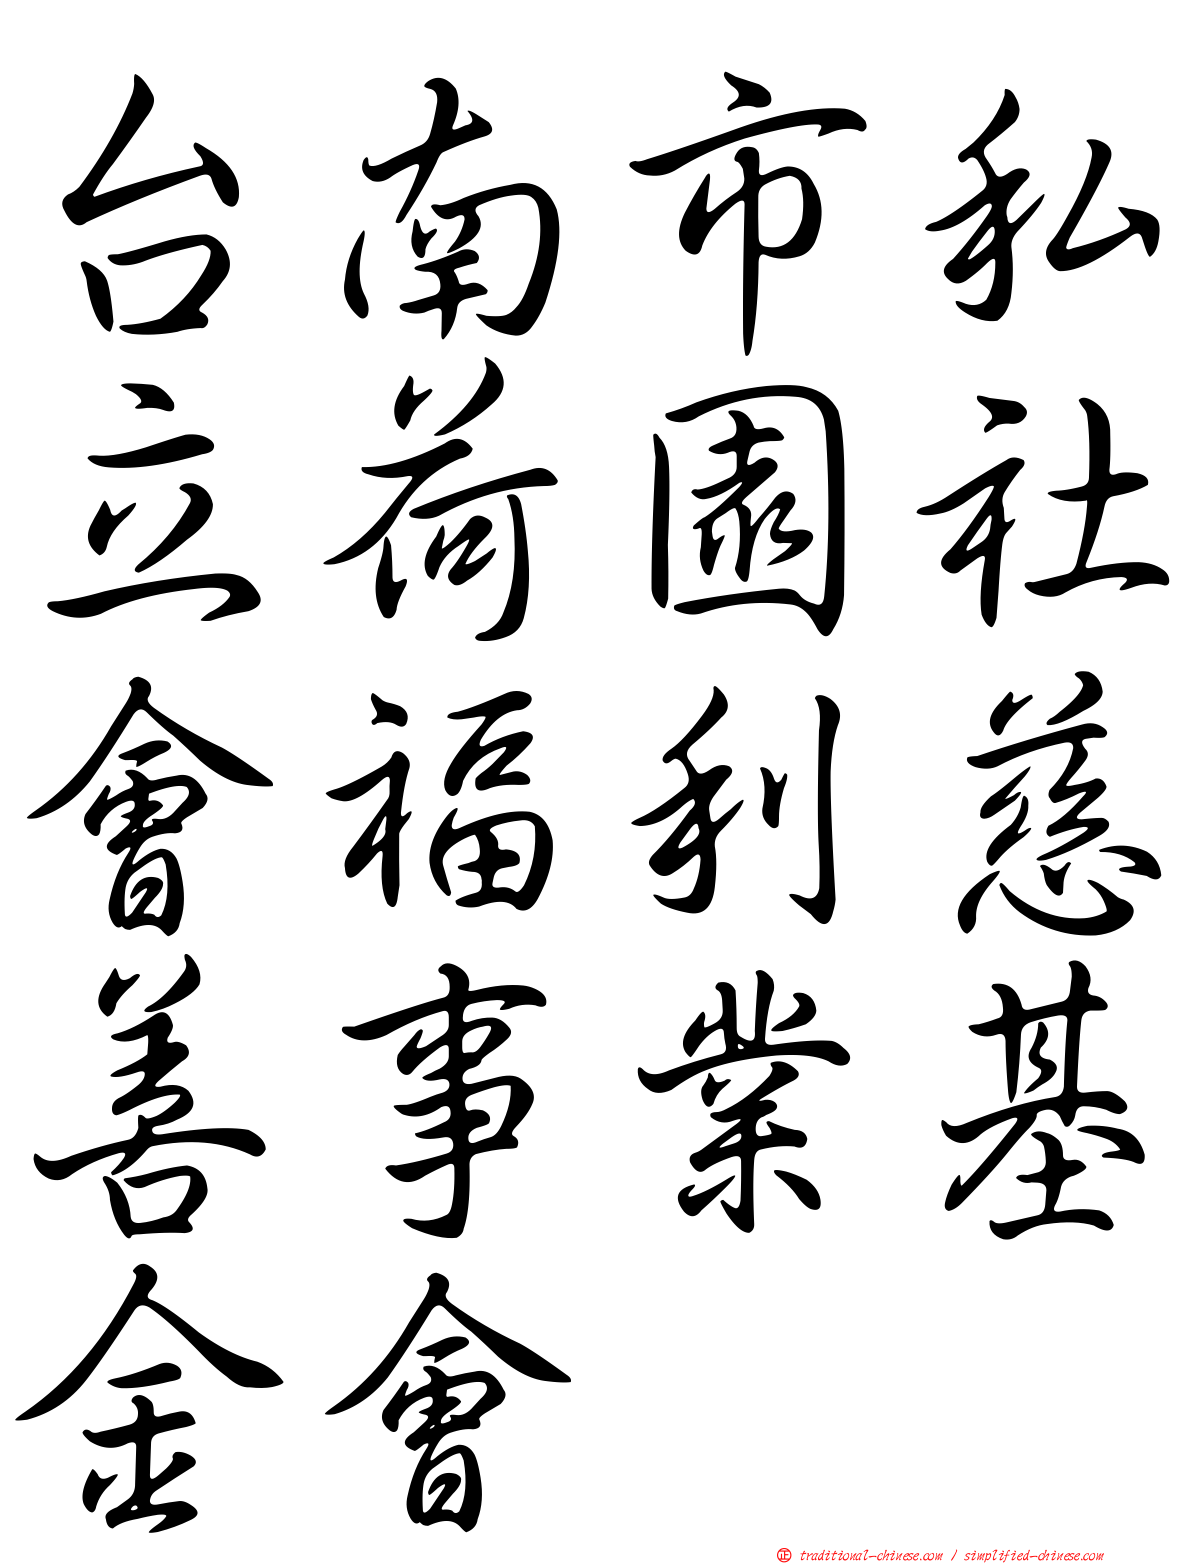 台南市私
立荷園社
會福利慈
善事業基
金會
正 traditional-chinese.com / simplified-chinese.com